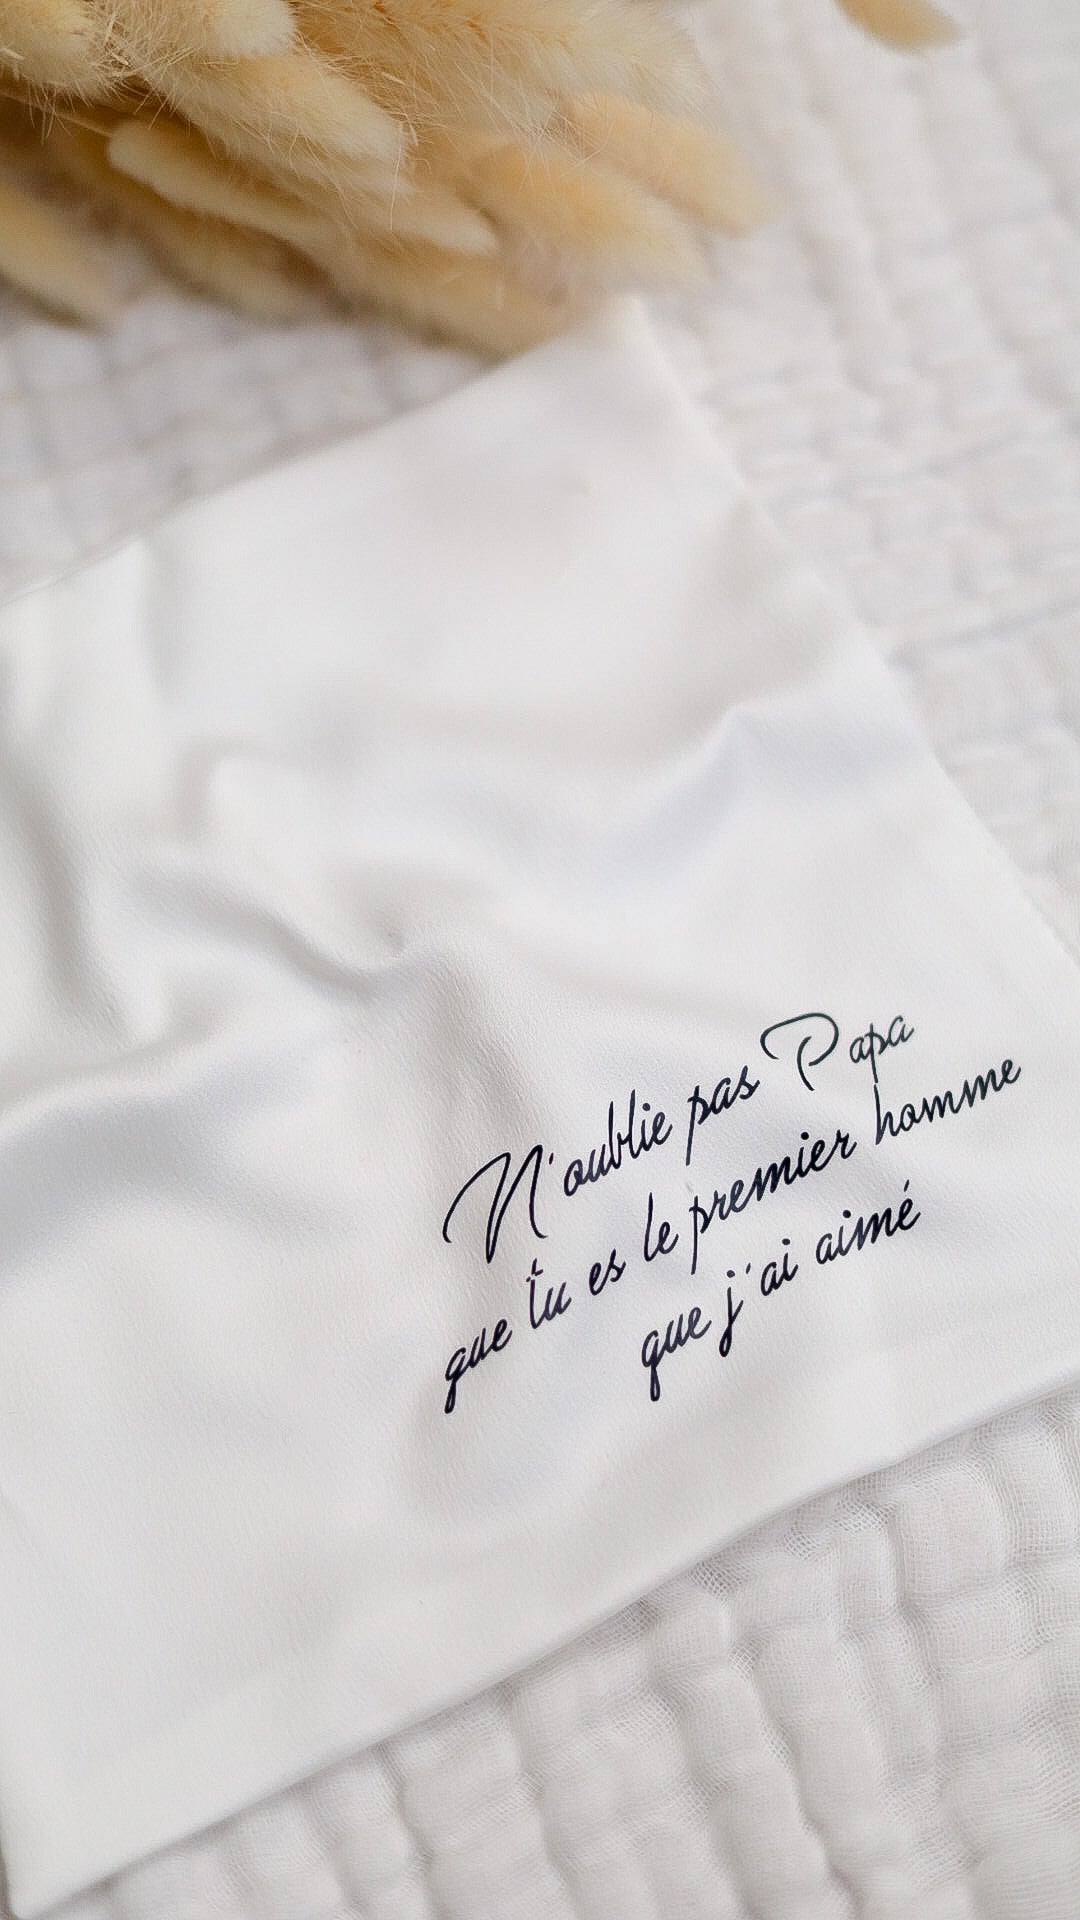 N'oublie pas Papa
que tu es le premier homme
que j'ai aimé